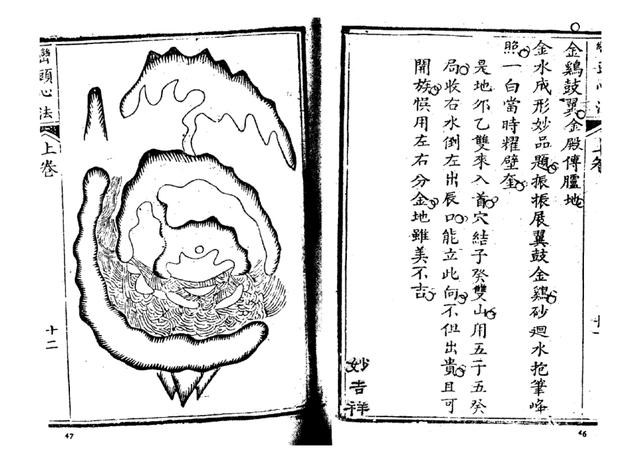 金鷄鼓翼金殿傳臚地
金水成形妙品題振振展翼鼓金鷄砂迴水抱筆峰
照一白當時耀壁奎
是地夘乙雙來入首穴結子癸雙山用五子五癸
局收右水倒左出辰口能立此向不但出貴且可
開族悞用左右分金地雖美不吉
妙吉祥
46
巒頭心法
上卷
十二
47